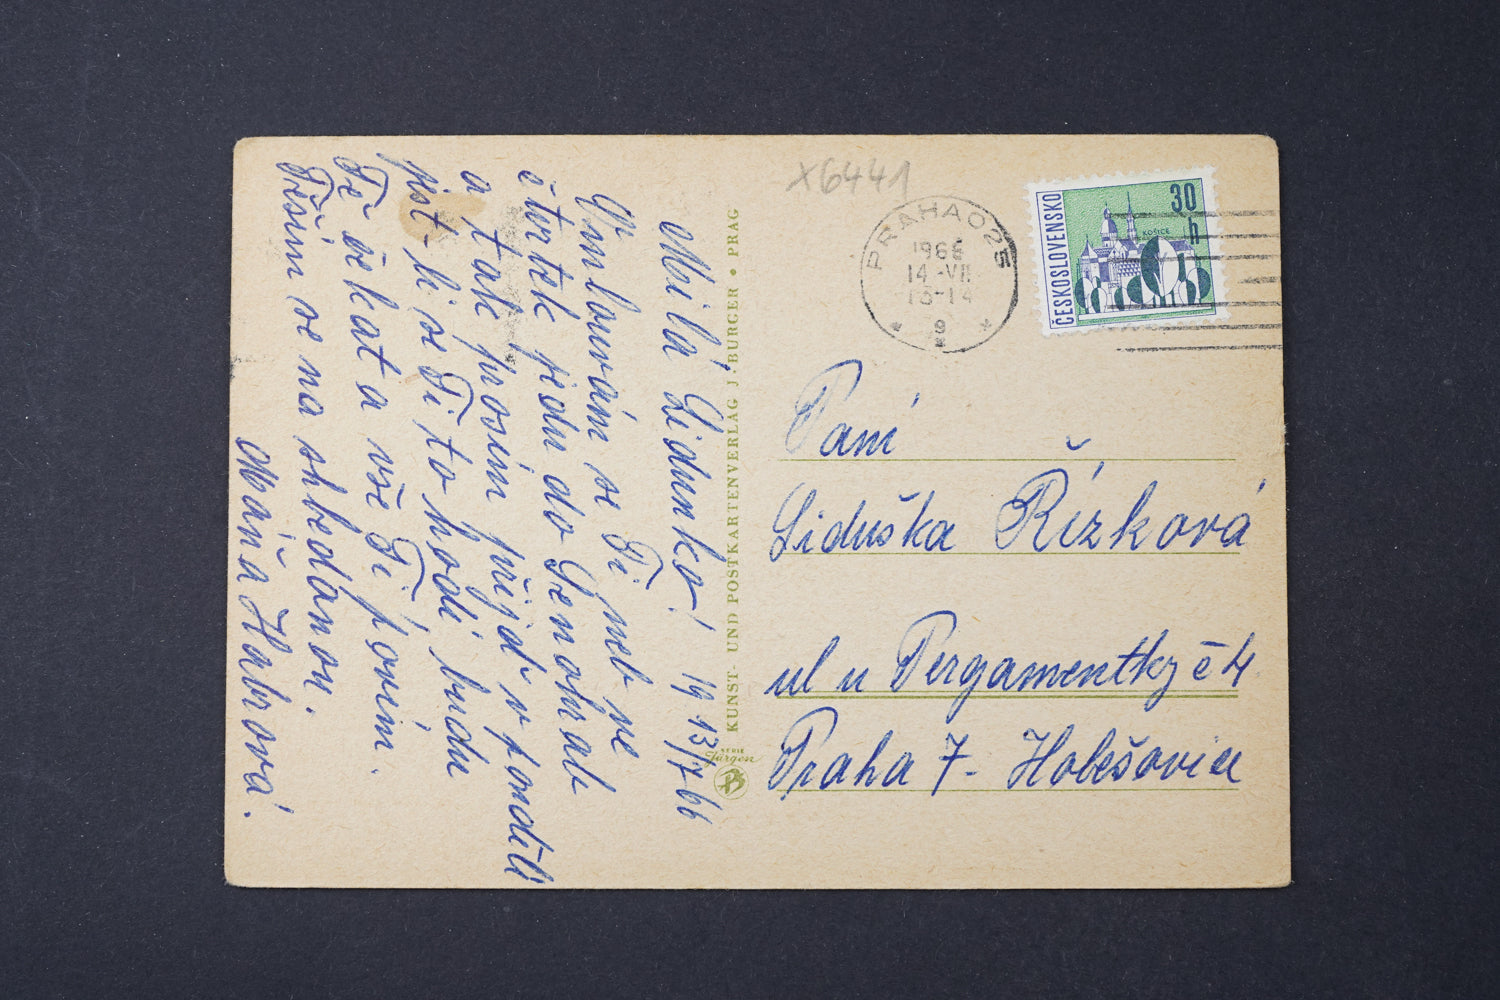 Milá Lidunko! 19 13/7 66
Omlouvám se Ti neb ve
čtvrtek jedu do Senohrab
a tak prosím přijď v pondělí
jist-li se Ti to hodí budu
Tě čekat a vše Ti povím.
Těším se na shledanou.
Máňa Habrová.
KUNST- UND POSTKARTENVERLAG J. BURGER • PRAG
SERIE
Jürgen
X6441
PRAHA 025
1966
14.-VII
13-14
9
ČESKOSLOVENSKO
30
h
KOŠICE
Paní
Liduška Řízková
ul u Pergamentky č 4
Praha 7- Holešovice